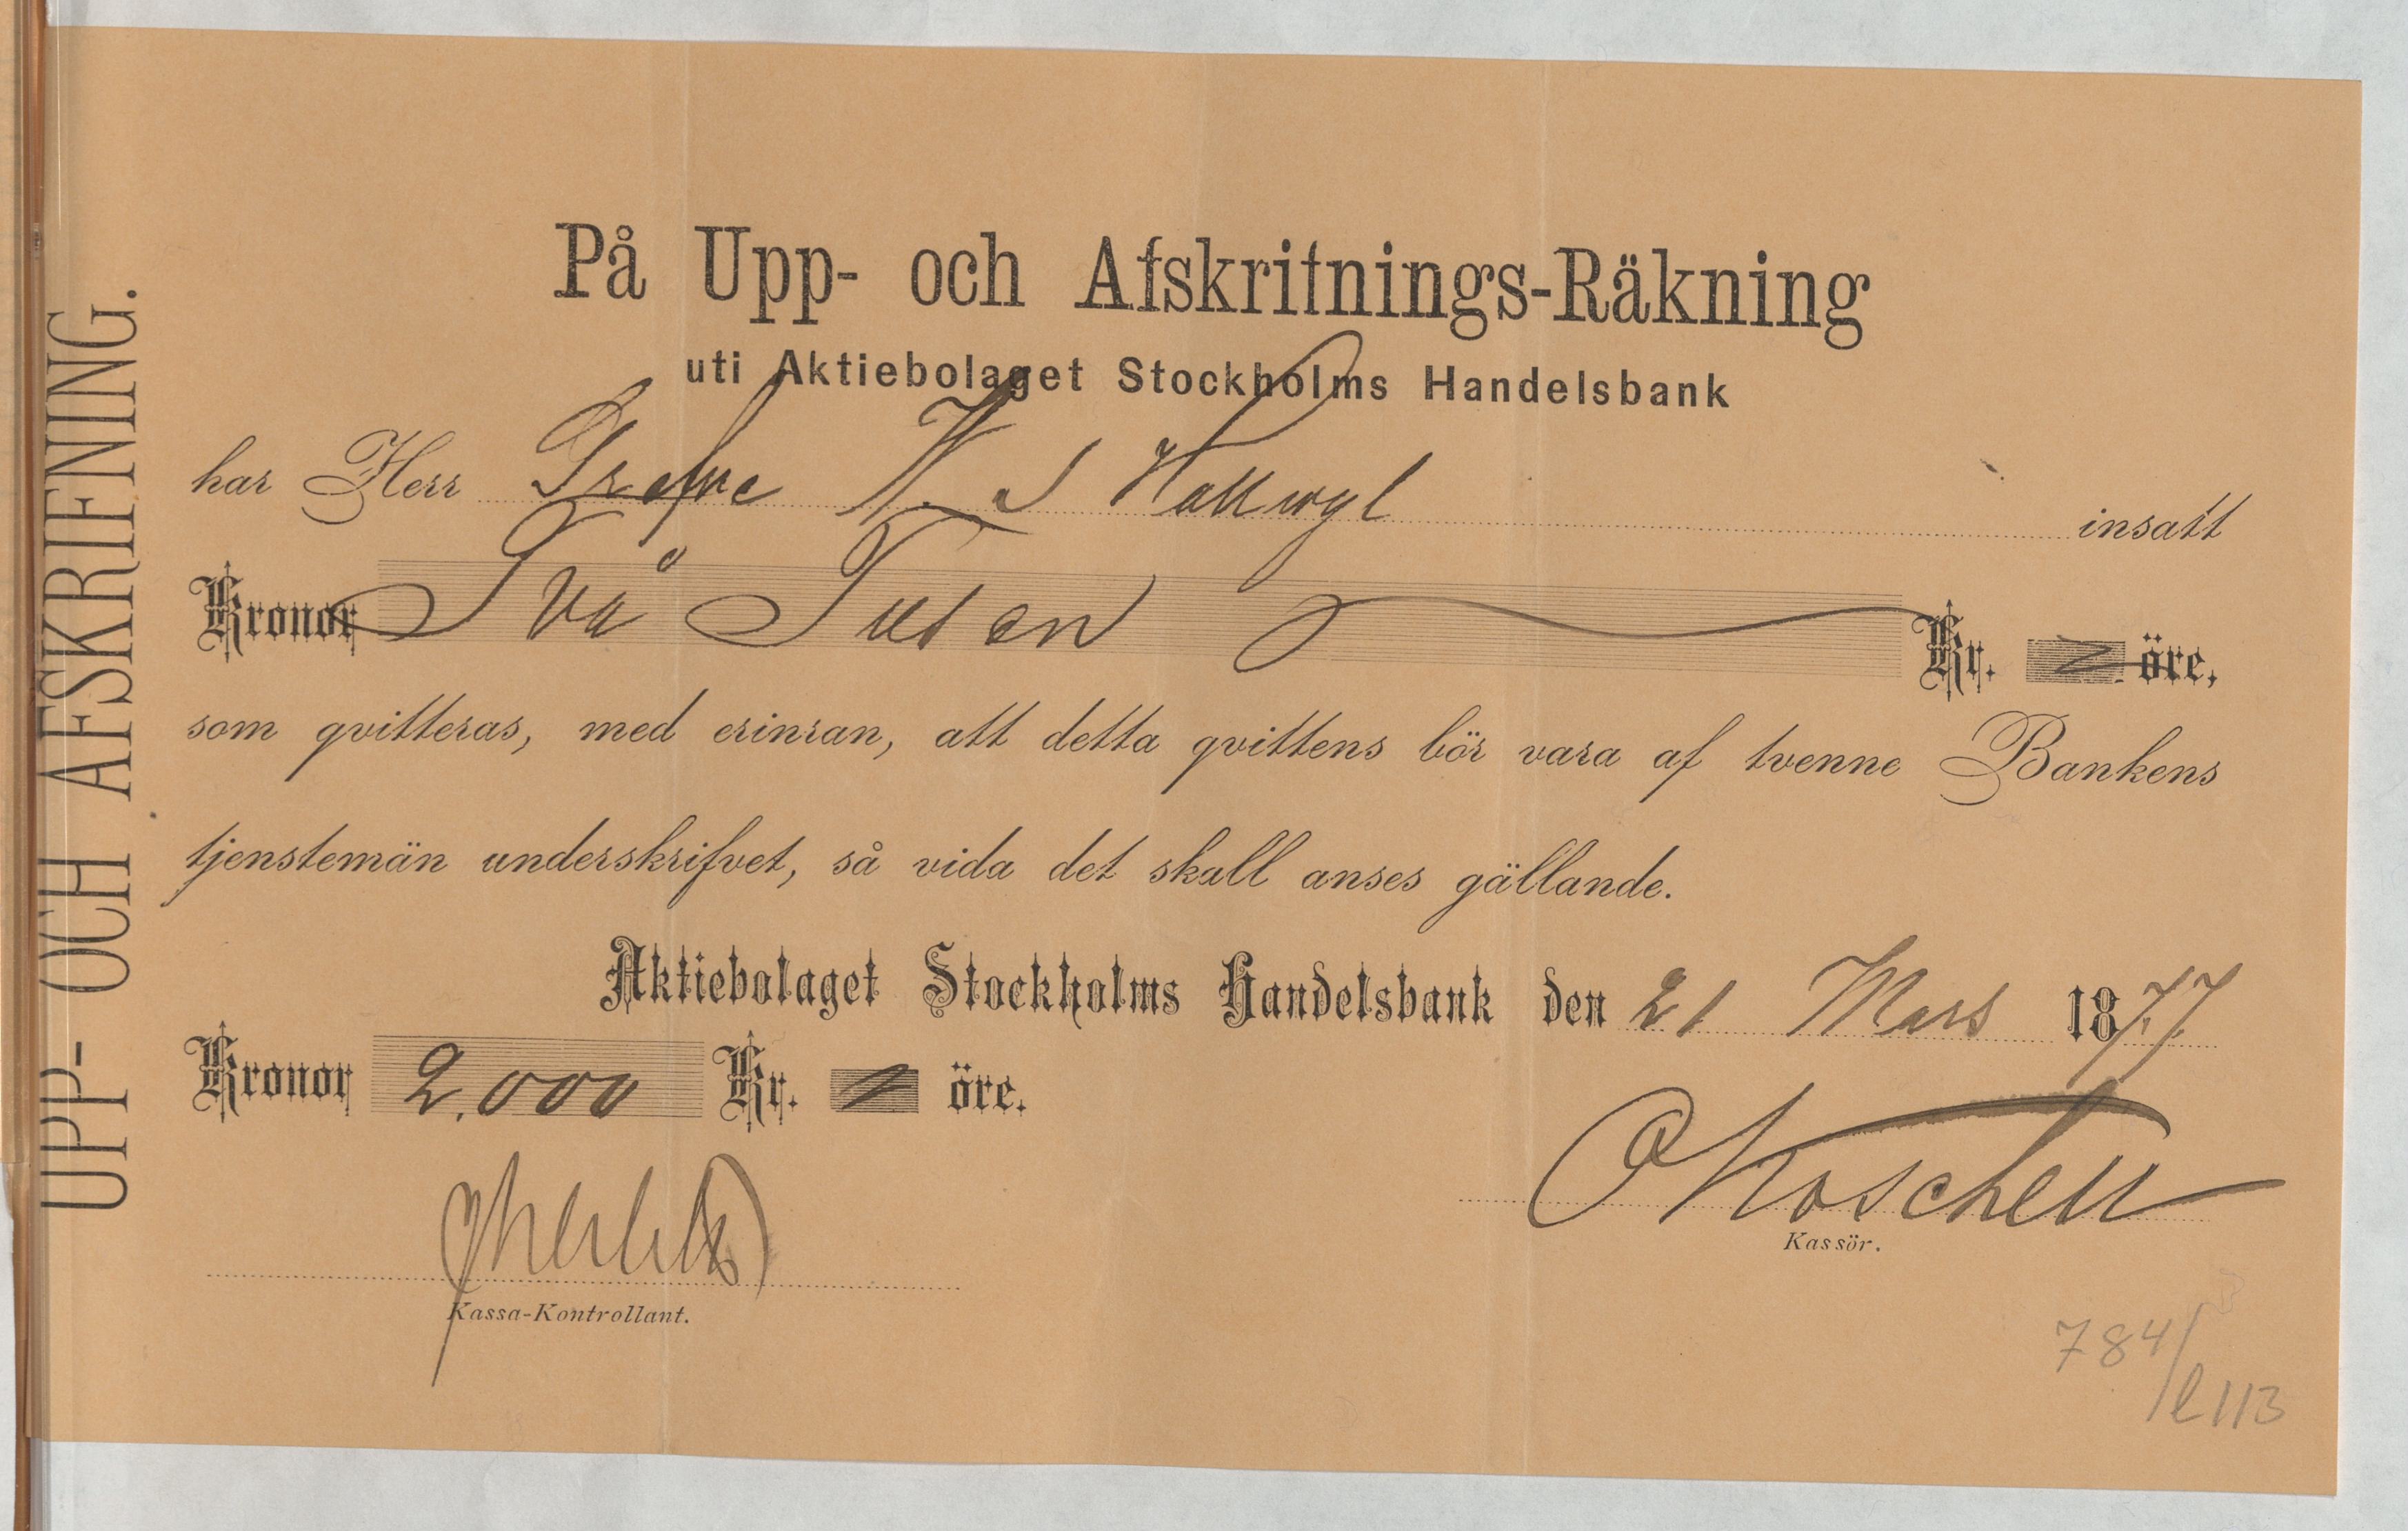 UPP- OCH AFSKRIFNING.
På Upp- och Afskrifnings-Räkning
uti Aktiebolaget Stockholms Handelsbank
har Herr Grefve W. v Hallwyl insatt
Kronor Två Tusen Kr. öre,
som qvitteras, med erinran, att detta qvittens bör vara af tvenne Bankens
tjenstemän underskrifvet, så vida det skall anses gällande.
Aktiebolaget Stockholms Handelsbank den 21 Mars 1877
Kronor 2.000 Kr. öre.
Kassör.
Kassa-Kontrollant.
784/
l 113